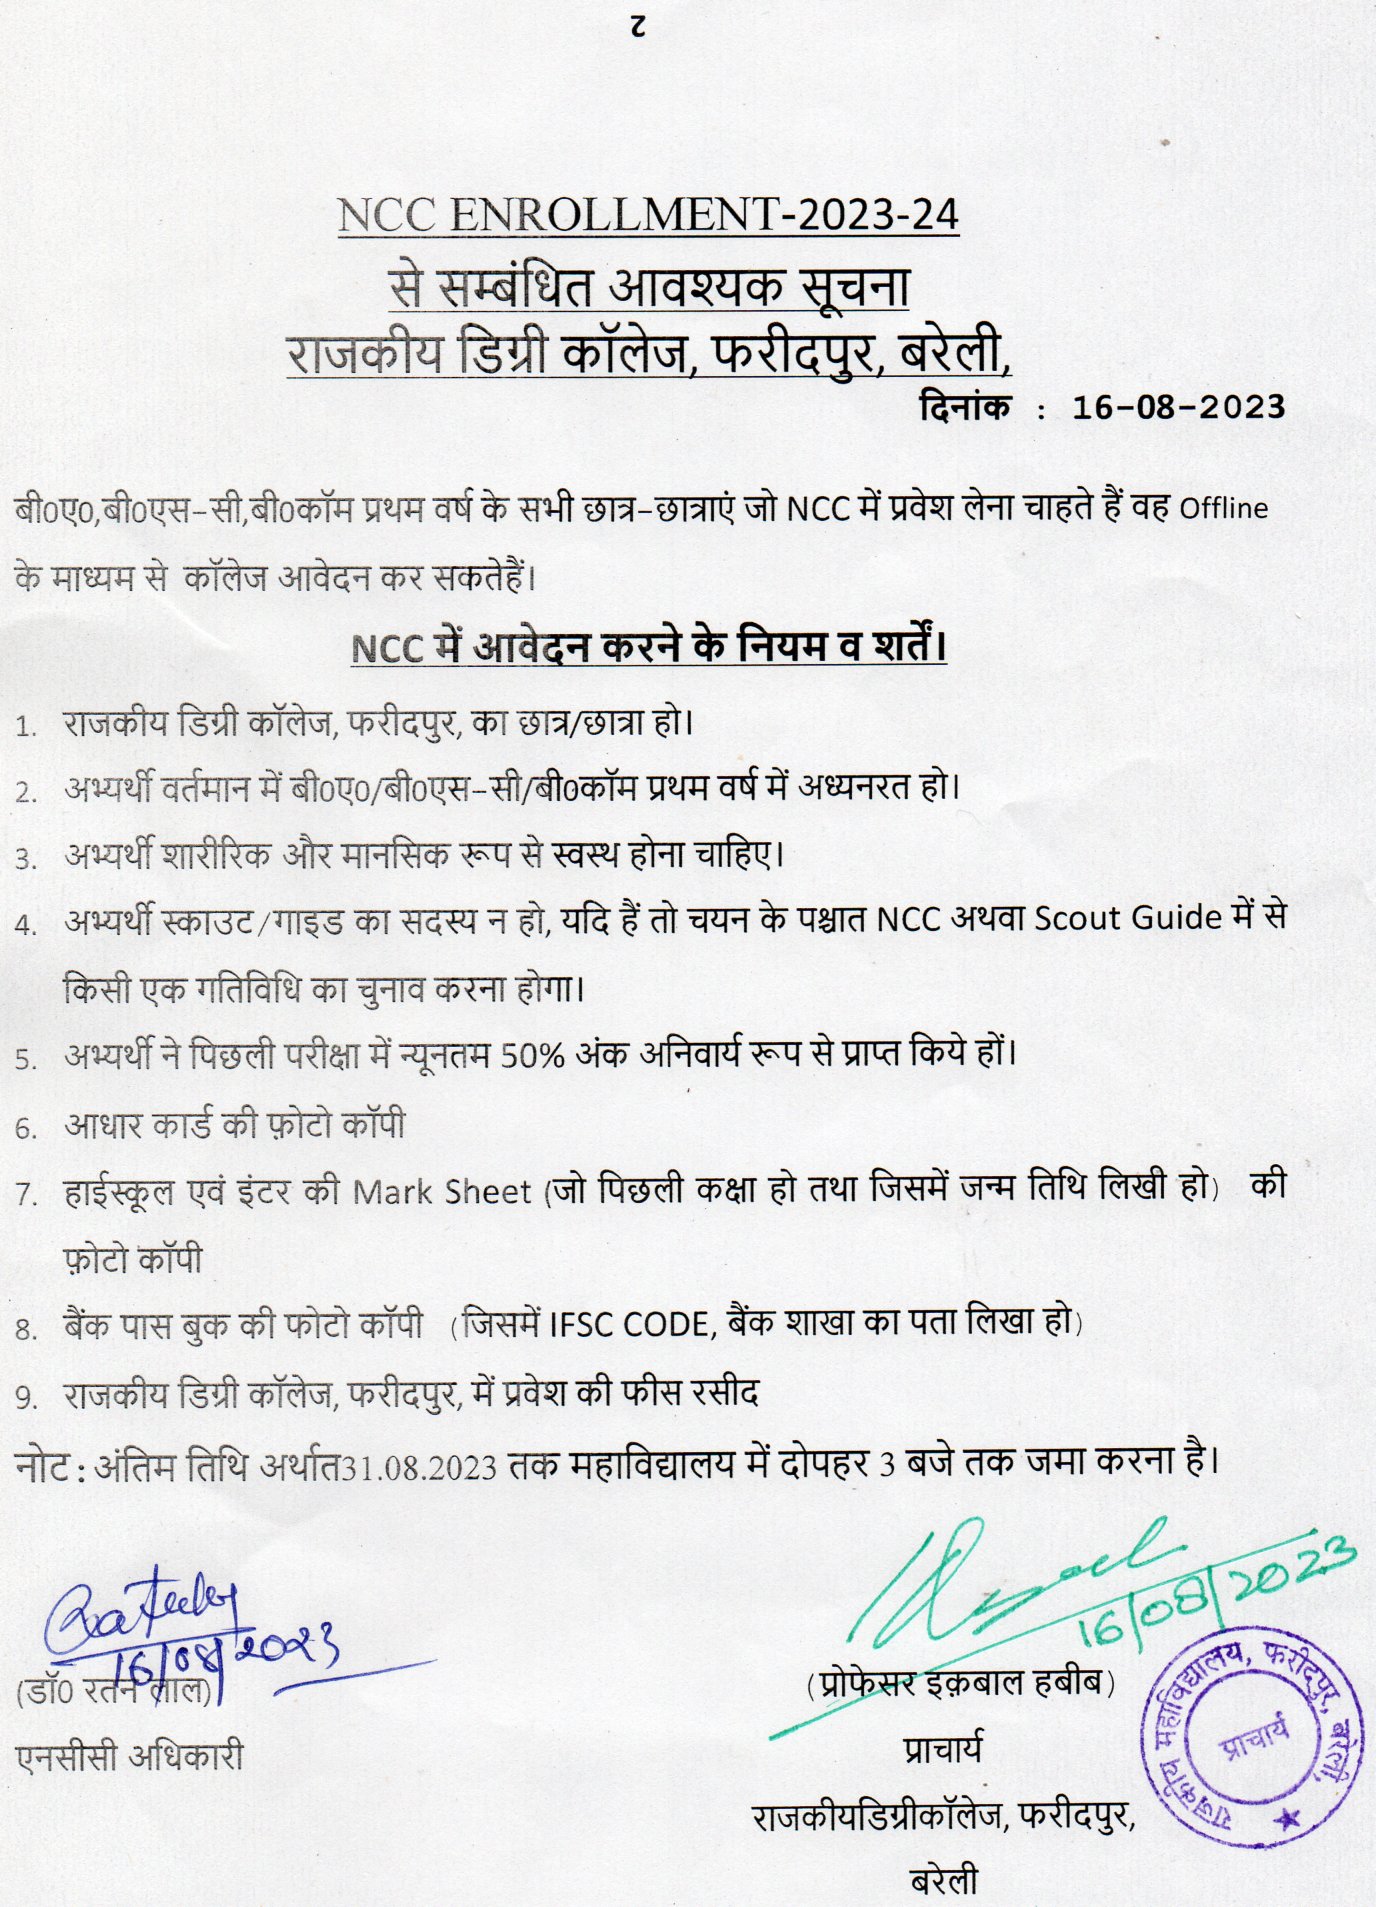 2
NCC ENROLLMENT-2023-24
से सम्बंधित आवश्यक सूचना
राजकीय डिग्री कॉलेज, फरीदपुर, बरेली,
दिनांक : 16-08-2023
बी0ए0,बी0एस-सी,बी0कॉम प्रथम वर्ष के सभी छात्र-छात्राएं जो NCC में प्रवेश लेना चाहते हैं वह Offline
के माध्यम से कॉलेज आवेदन कर सकतेहैं।
NCC में आवेदन करने के नियम व शर्तें।
1. राजकीय डिग्री कॉलेज, फरीदपुर, का छात्र/छात्रा हो।
2. अभ्यर्थी वर्तमान में बी0ए0/बी0एस-सी/बी0कॉम प्रथम वर्ष में अध्यनरत हो।
3. अभ्यर्थी शारीरिक और मानसिक रूप से स्वस्थ होना चाहिए।
4. अभ्यर्थी स्काउट/गाइड का सदस्य न हो, यदि हैं तो चयन के पश्चात NCC अथवा Scout Guide में से
किसी एक गतिविधि का चुनाव करना होगा।
5. अभ्यर्थी ने पिछली परीक्षा में न्यूनतम 50% अंक अनिवार्य रूप से प्राप्त किये हों।
6. आधार कार्ड की फ़ोटो कॉपी
7. हाईस्कूल एवं इंटर की Mark Sheet (जो पिछली कक्षा हो तथा जिसमें जन्म तिथि लिखी हो) की
फ़ोटो कॉपी
8. बैंक पास बुक की फोटो कॉपी (जिसमें IFSC CODE, बैंक शाखा का पता लिखा हो)
9. राजकीय डिग्री कॉलेज, फरीदपुर, में प्रवेश की फीस रसीद
नोट : अंतिम तिथि अर्थात31.08.2023 तक महाविद्यालय में दोपहर 3 बजे तक जमा करना है।
16/08/2023
16/08/2023
(डॉ0 रतन लाल)
एनसीसी अधिकारी
(प्रोफेसर इक़बाल हबीब)
प्राचार्य
राजकीयडिग्रीकॉलेज, फरीदपुर,
बरेली
राजकीय महाविद्यालय, फरीदपुर, बरेली,
प्राचार्य